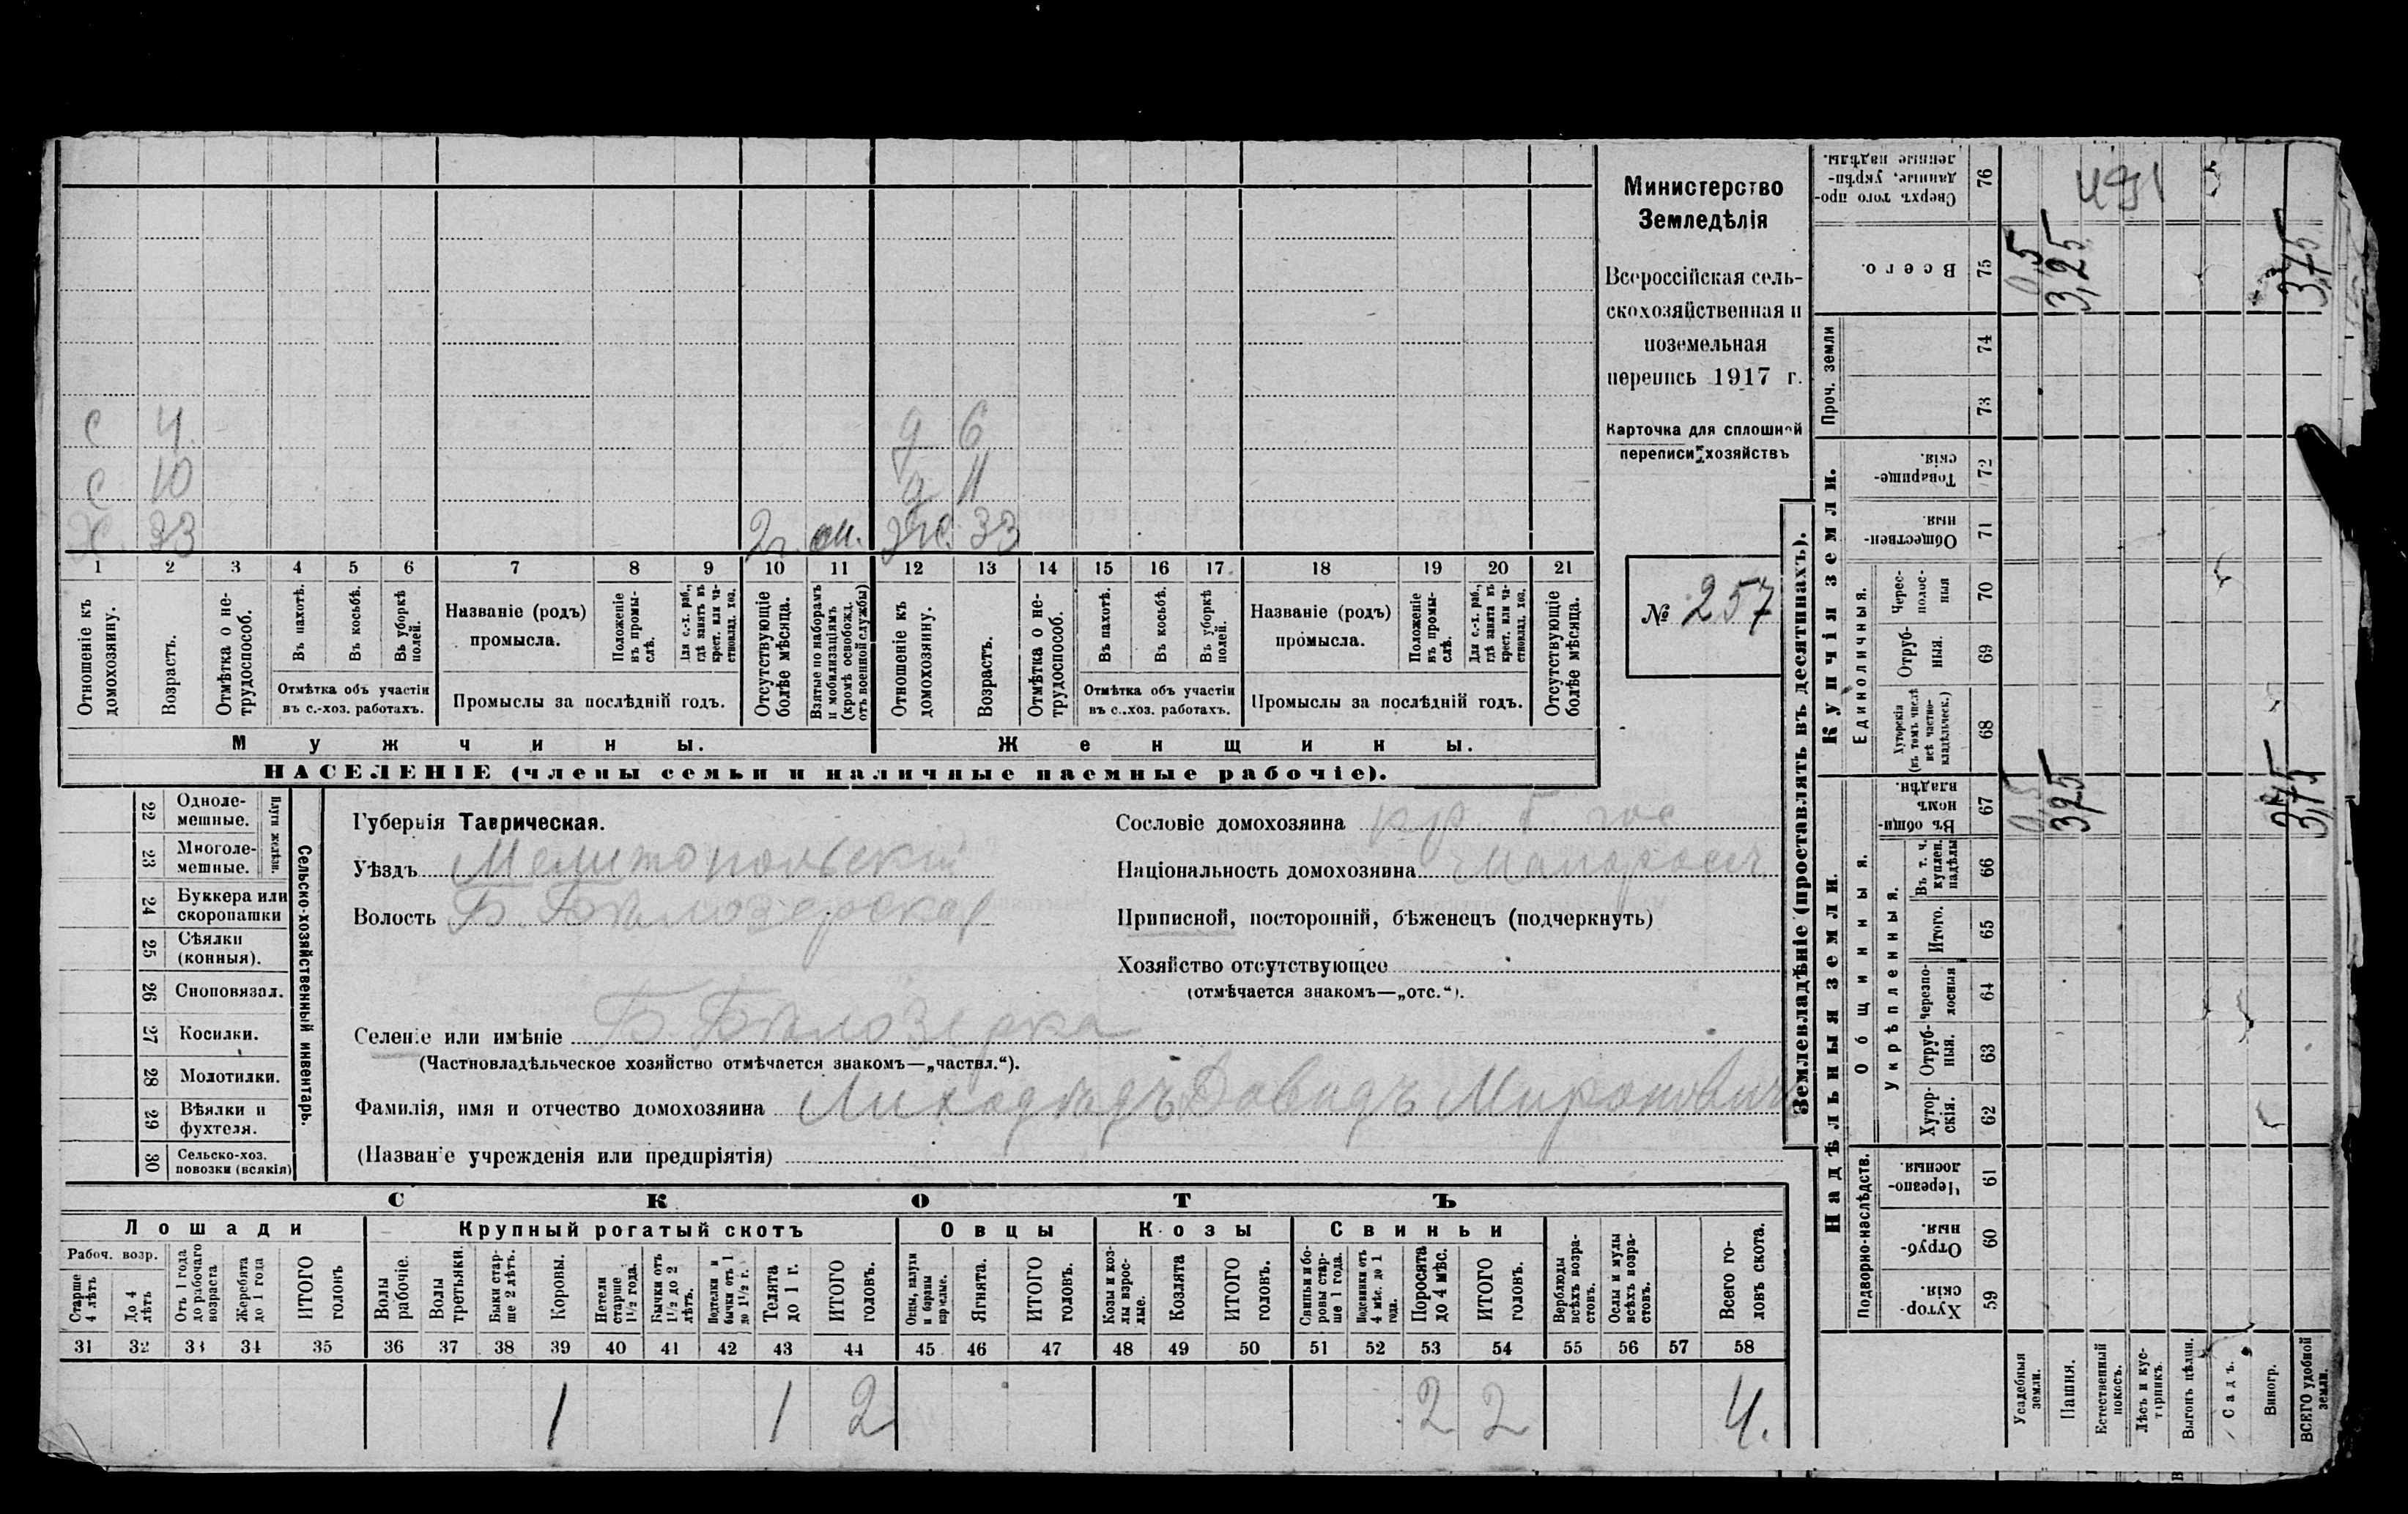 Министерство
Земледѣлія
Всероссійская сель-
скохозяйственная и
поземельная
перепись 1917 г.
Карточка для сплошной
переписи хозяйствъ
№ 257
с 4 д 6
с 10 д 11
х. 33 2 г. ж. 33
1 2 3 4 5 6 7 8 9 10 11 12 13 14 15 16 17 18 19 20 21
Отношеніе къ домохозяину.
Возрастъ.
Отмѣтка о не-трудоспособ.
Въ пахотѣ.
Въ косьбѣ.
Въ уборкѣ полей.
Отмѣтка объ участіи
въ с.-хоз. работахъ.
Названіе (родъ)
промысла.
Положеніе въ промы-слѣ.
Для с.-х. раб., гдѣ занятъ въ крест. или ча-ствовлад. хоз.
Промыслы за послѣдній годъ.
Отсутствующіе болѣе мѣсяца.
Взятые по наборамъ и мобилизаціямъ (кромѣ освобожд. отъ военной службы)
Отношеніе къ домохозяину.
Возрастъ.
Отмѣтка о не-трудоспособ.
Въ пахотѣ.
Въ косьбѣ.
Въ уборкѣ полей.
Отмѣтка объ участіи
въ с.-хоз. работахъ.
Названіе (родъ)
промысла.
Положеніе въ промы-слѣ.
Для с.-х. раб., гдѣ занята въ крест. или ча-ствовлад. хоз.
Промыслы за послѣдній годъ.
Отсутствующіе болѣе мѣсяца.
Мужчины. Женщины.
НАСЕЛЕНІЕ (члены семьи и наличные наемные рабочіе).
Сельско-хозяйственный инвентарь.
Плуги желѣзн.
22 Одноле-мешные.
23 Многоле-мешные.
24 Буккера или скоропашки
25 Сѣялки (конныя).
26 Сноповязал.
27 Косилки.
28 Молотилки.
29 Вѣялки и фухтеля.
30 Сельско-хоз. повозки (всякія)
Губернія Таврическая.
Уѣздъ Мелитопольскій
Волость Б. Бѣлозерская
Сословіе домохозяина кр. б. гос
Національность домохозяина малороссъ
Приписной, посторонній, бѣженецъ (подчеркнуть)
Хозяйство отсутствующее
(отмѣчается знакомъ—„отс.“).
Селеніе или имѣніе Б. Бѣлозерка
(Частновладѣльческое хозяйство отмѣчается знакомъ—„частвл.“).
Фамилія, имя и отчество домохозяина Лиходѣдъ Давидъ Мироновичъ
(Названіе учрежденія или предпріятія)
СКОТЪ
Лошади Крупный рогатый скотъ Овцы Козы Свиньи
Рабоч. возр.
Старше 4 лѣтъ
До 4 лѣтъ
Отъ 1 года до рабочаго возраста
Жеребята до 1 года
ИТОГО головъ
Волы рабочіе.
Волы третьяки.
Быки стар-ше 2 лѣтъ.
Коровы.
Нетели старше 1 1/2 года.
Бычки отъ 1 1/2 до 2 лѣтъ.
Подтелки и бычки отъ 1 до 1 1/2 г.
Телята до 1 г.
ИТОГО головъ.
Овцы, валухи и бараны взрослые.
Ягнята.
ИТОГО головъ.
Козы и коз-лы взрос-лые.
Козлята
ИТОГО головъ.
Свиньи и бо-ровы стар-ше 1 года.
Подсвинки отъ 4 мѣс. до 1 года.
Поросята до 4 мѣс.
ИТОГО головъ.
Верблюды всѣхъ возра-стовъ.
Ослы и мулы всѣхъ возра-стовъ.
Всего го-ловъ скота.
31 32 33 34 35 36 37 38 39 40 41 42 43 44 45 46 47 48 49 50 51 52 53 54 55 56 57 58
1 1 2 2 2 4.
Землевладѣніе (проставлять въ десятинахъ).
Надѣльныя земли. Купчія земли. Проч. земли
Подворно-наслѣдств.
Общинныя.
Укрѣпленныя.
Единоличныя.
Хутор-скія. 59
Отруб-ныя. 60
Черезпо-лосныя. 61
Хутор-скія. 62
Отруб-ныя. 63
Черезпо-лосныя 64
Итого. 65
Въ т. ч. куплен. надѣлы 66
Въ общин-номъ владѣн. 67
Хуторскія (въ томъ числѣ всѣ частно-владѣльческ.) 68
Отруб-ныя. 69
Черес-полос-ныя 70
Обществен-ныя. 71
Товарище-скія. 72
73
74
Всего. 75
Сверхъ того про-данные, укрѣп-ленные надѣлы. 76
Усадебныя земли. 0,5 0,5
Пашня. 3,25 3,25
Естественный покосъ.
Лѣсъ и кус-тарникъ.
Выгонъ цѣлин.
Садъ.
Виногр.
ВСЕГО удобной земли. 3,75 3,75